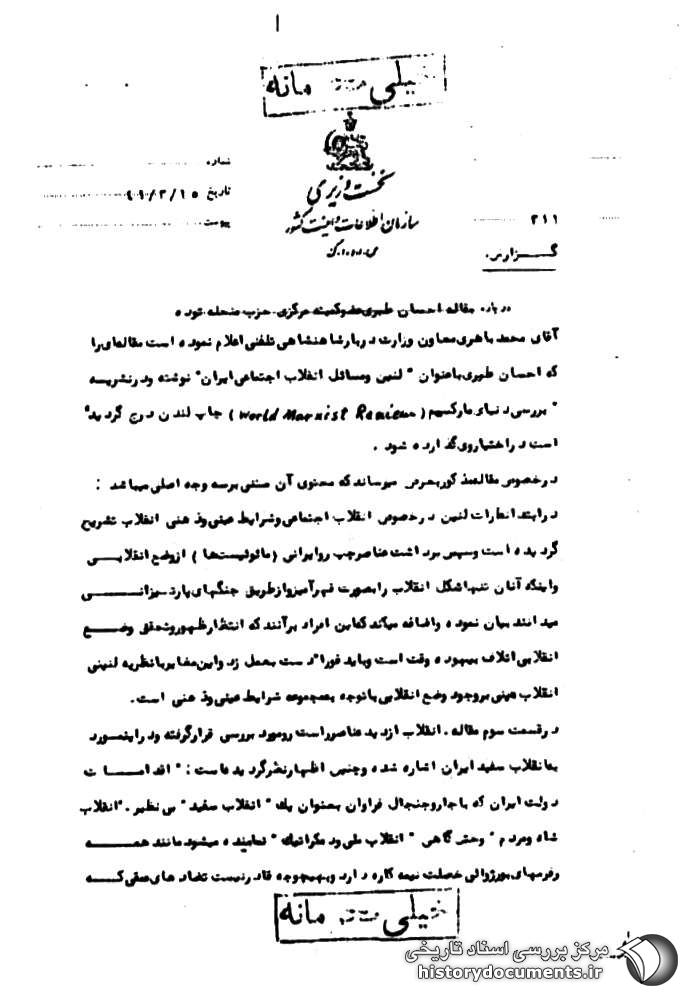 خیلی محرمانه
نخست وزیری
سازمان اطلاعات و امنیت کشور
شماره
تاریخ ۱۵/۳/
پیوست
۳۱۱
گزارش
درباره مقاله احسان طبری عضو کمیته مرکزی حزب منحله توده
آقای محمد باهری معاون وزارت دربار شاهنشاهی تلفنی اعلام نموده است مقاله‌ای را
که احسان طبری با عنوان " لنین و مسائل انقلاب اجتماعی ایران" نوشته و در نشریه
" بررسی دنیای مارکسیم ( World Marxist Review ) چاپ لندن درج گردیده"
است در اختیار وی گذارده شود .
در خصوص مقاله مذکور بعرض میرساند که محتوی آن مبتنی بر سه وجه اصلی میباشد :
در ابتدا نظرات لنین در خصوص انقلاب اجتماعی و شرایط عینی و ذهنی انقلاب تشریح
گردیده است و سپس برداشت عناصر چپ رو ایرانی ( مائوئیست‌ها ) از وضع انقلابی
و اینکه آنان تنها شکل انقلاب را بصورت قهرآمیز و از طریق جنگهای پارتیزانی
میدانند بیان نموده و اضافه میکند که این افراد برآنند که انتظار ظهور و تحقق وضع
انقلابی اتلاف بیهوده وقت است و باید فورا" دست بعمل زد و این مغایر با نظریه لنینی
انقلاب مبنی بر وجود وضع انقلابی با توجه بمجموعه شرایط عینی و ذهنی است.
در قسمت سوم مقاله . انقلاب از دید عناصر راست رو مورد بررسی قرار گرفته و در اینمورد
به انقلاب سفید ایران اشاره شده و چنین اظهار نظر گردیده است : " اقدامات
دولت ایران که با جار و جنجال فراوان بعنوان یک " انقلاب سفید " بی نظیر . "انقلاب
شاه و مردم " و حتی گاهی " انقلاب ملی و دمکراتیک " نمایانده میشود مانند همه
رفرمهای بورژوائی خصلت نیمه کاره دارد و بهیچوجه قادر نیست تضادهای عمقی که
خیلی محرمانه
مرکز بررسی اسناد تاریخی
historydocuments.ir